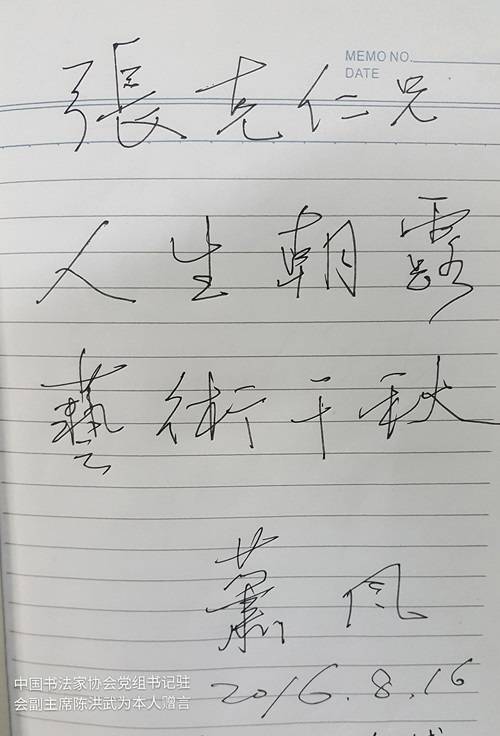 MEMO NO.
DATE
張克仁兄
人生朝露
藝術千秋
蕭风
2016.8.16
中国书法家协会党组书记驻
会副主席陈洪武为本人赠言